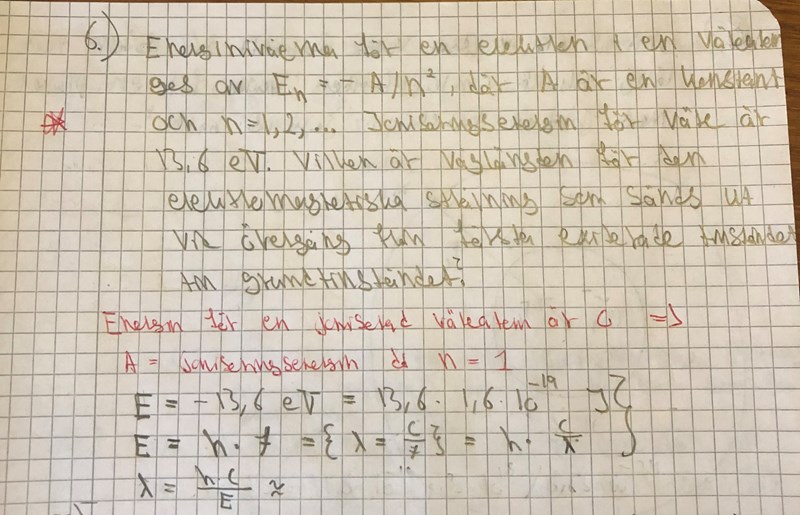 6.) Energinivåerna för en elektron i en väteatom
ges av En = - A/n², där A är en konstant
och n=1,2,... Joniseringsenergin för väte är
13,6 eV. Vilken är våglängden för den
elektromagnetiska strålning som sänds ut
vid övergång från första exiterade tillståndet
till grundtillståndet?
Energin för en joniserad väteatom är 0 =>
A = joniseringsenergin då n = 1
E = -13,6 eV = 13,6 · 1,6 · 10⁻¹⁹ J }
E = h · f = { λ = c/f } = h · c/λ }
λ = hc/E ≈